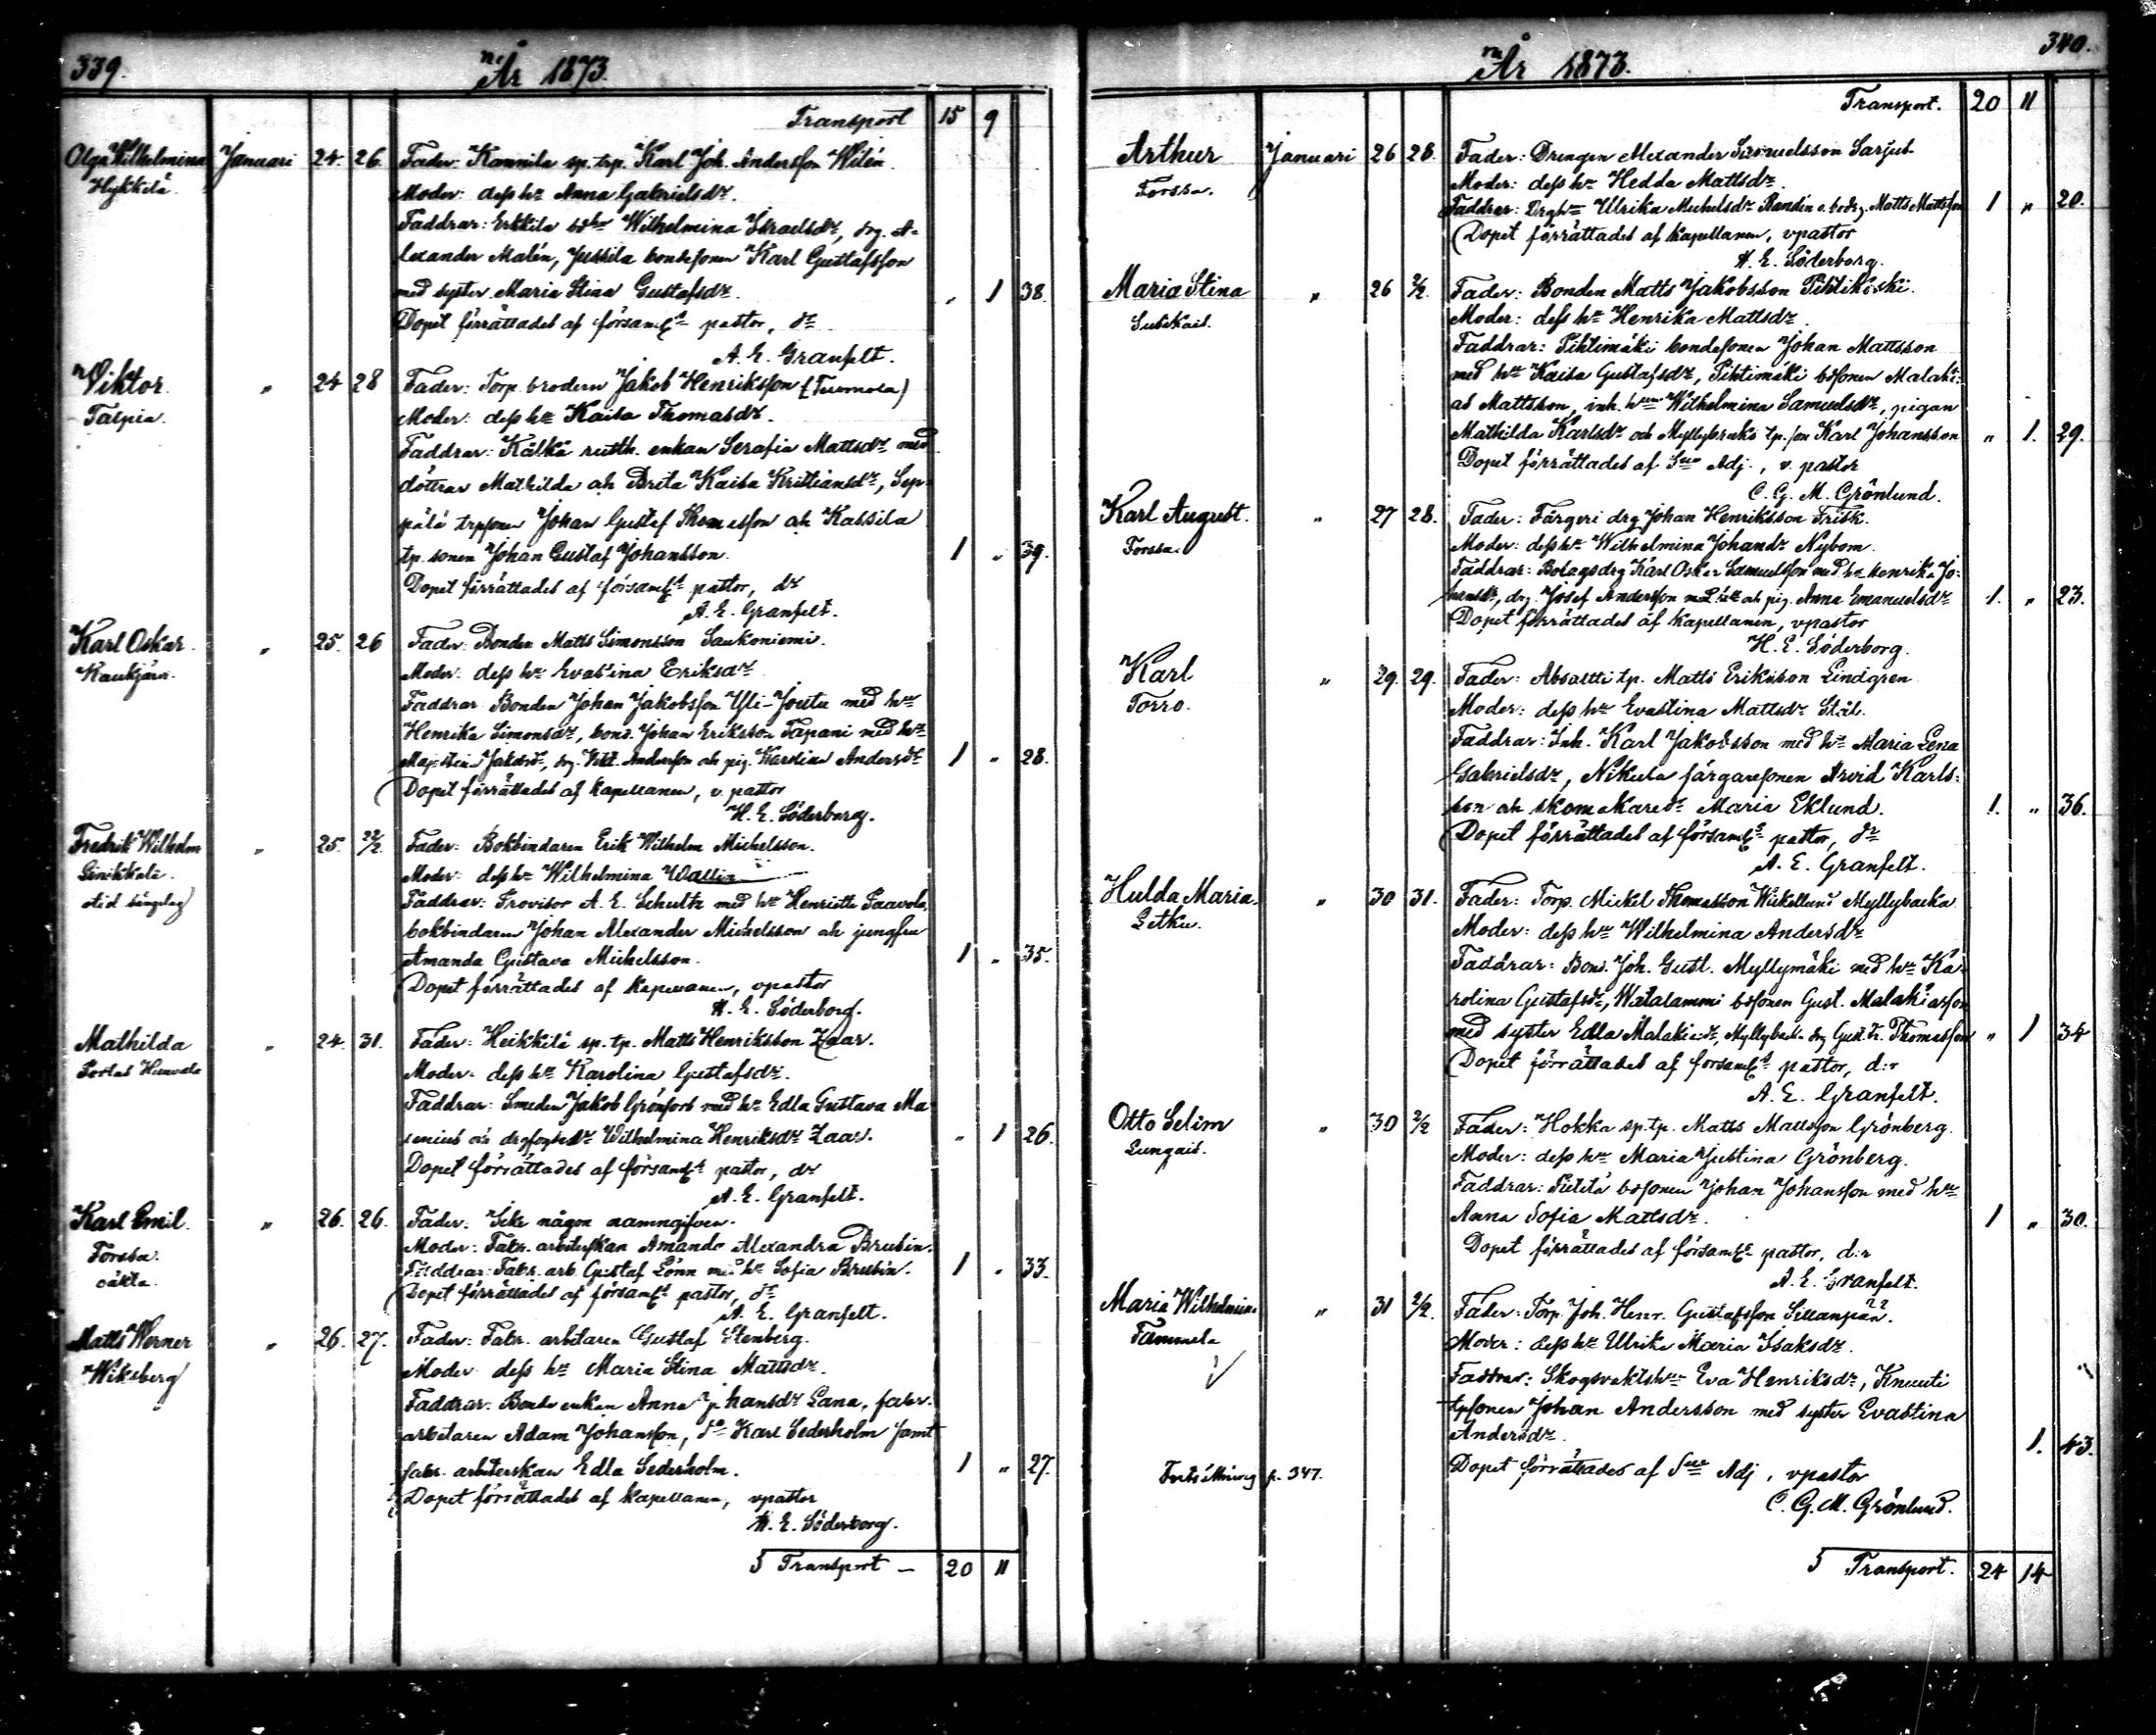 339.
År 1873.
Transport 15 9
Olga Wilhelmina Januari 24. 26. Fader: Konnila sp. trp. Karl Joh. Andersson Wilén
Hykkilä. Moder: dess hu Anna Gabrielsdr.
Faddrar: Erkkila bdhu Wilhelmina Israelsdr, drg. A-
lexander Malén, Jussila bondesonen Karl Gustafsson
med syster Maria Stina Gustafsdr. „ 1 38.
Dopet förrättades af församls pastor, dr
A. E. Granfelt.
Viktor. „ 24 28 Fader: Torp. brodern Jakob Henriksson (Tuomola)
Talpia. Moder: dess hu Kaisa Thomasdr.
Faddrar: Kälkä rusth. enkan Serafia Mattsdr med
döttrar Mathilda och Brita Kaisa Kristiansdr, Sep-
pälä trpsonen Johan Gustaf Thomasson och Kassila
tp. sonen Johan Gustaf Johansson. 1 „ 39.
Dopet förrättades af församls pastor, dr
A. E. Granfelt.
Karl Oskar. „ 25. 26 Fader: Bonden Matts Simonsson Saukoniemi.
Kaukjärvi. Moder: dess hu Evastina Eriksdr
Faddrar Bonden Johan Jakobsson Yli-Joutu med hu
Henrika Simonsdr, bond. Johan Eriksson Tapani med hu
Maja Stina Jakobsdr, drg. Vikt. Andersson och pig. Karolina Andersdr 1 „ 28.
Dopet förrättades af kapellanen, v. pastor
H. E. Söderborg.
Fredrik Wilhelm „ 25. 2/2. Fader: Bokbindaren Erik Wilhelm Michelsson.
Moder: dess hu Wilhelmina Wallin
Faddrar: Provisor A. E. Schultz med hu Henriette Paavola,
bokbindaren Johan Alexander Michelsson och jungfru
Amanda Gustava Michelsson. 1 „ 35.
Dopet förrättades af kapellanen, vpastor
H. E. Söderborg.
Mathilda „ 24. 31. Fader: Heikkilä sp. tp. Matts Henriksson Zaar.
Portas Moder: dess hu Karolina Gustafsdr.
Faddrar: Smeden Jakob Grönfors med hu Edla Gustava Ma-
senius och drgfogdedr Wilhelmina Henriksdr Zaar. „ 1 26.
Dopet förrättades af församls pastor, dr
A. E. Granfelt.
Karl Emil. „ 26. 26. Fader: Icke någon namngifven.
Forssa. Moder: Fabr. arbeterskan Amanda Alexandra Brusin.
oäkta. Faddrar: Fabr. arb. Gustaf Lönn med hu Sofia Brusin. 1 „ 33.
Dopet förrättades af församls pastor, dr
A. E. Granfelt.
Matts Werner „ 26. 27. Fader: Fabr. arbetaren Gustaf Stenberg.
Wiksberg Moder dess hu Maria Stina Mattsdr
Faddrar: Bonde enkan Anna Johansdr Lana, fabr.
arbetaren Adam Johansson, do Karl Sederholm samt
fabr. arbeterskan Edla Sederholm. 1 „ 27.
Dopet förrättades af kapellanen, vpastor
H. E. Söderborg.
5 Transport – 20 11
340.
År 1873.
Transport. 20 11
Arthur Januari 26 28. Fader: Drengen Alexander Samuelsson Sarjus
Forssa. Moder: dess hu Hedda Mattsdr.
Faddrar: Drghu Ulrika Michelsdr Randin o. bodrg. Matts Mattsson 1 „ 20.
Dopet förrättades af kapellanen, vpastor
H. E. Söderborg.
Maria Stina „ 26 2/2. Fader: Bonden Matts Jakobsson Pihtikoski.
Sukskais. Moder: dess hu Henrika Mattsdr.
Faddrar: Pihtimäki bondesonen Johan Mattsson
med hu Kaisa Gustafsdr, Pihtimäki bdsonen Malaki-
as Mattsson, inh. hun Wilhelmina Samuelsdr, pigan
Mathilda Karlsdr och Myllybacka tp. son Karl Johansson „ 1. 29.
Dopet förrättades af Sue Adj., v. pastor
C. G. M. Grönlund.
Karl August. „ 27 28. Fader: Färgeri drg Johan Henriksson Frisk.
Forssa. Moder: dess hu Wilhelmina Johansdr Nybom.
Faddrar: Bolagsdrg Karl Oskar Samuelsson med hu Henrika Jo-
hansdr, drg. Josef Andersson med hu och pig. Anna Emanuelsdr 1. „ 23.
Dopet förrättades af kapellanen, vpastor
H. E. Söderborg.
Karl „ 29. 29. Fader: Absaltti tp. Matts Eriksson Lindgren
Torro. Moder: dess hu Evastina Mattsdr Stål.
Faddrar: Inh. Karl Jakobsson med hu Maria Lena
Gabrielsdr, Nikula färgaresonen Arvid Karls-
son och skomakaredr Maria Eklund. 1. „ 36.
Dopet förrättades af församls pastor, dr
A. E. Granfelt.
Hulda Maria. „ 30 31. Fader: Torp. Mickel Thomasson Wickellund Myllybacka
Letku. Moder: dess hu Wilhelmina Andersdr
Faddrar: Bond. Joh. Gust. Myllymäki med hu Ka-
rolina Gustafsdr, Watalammi bdsonen Gust. Malakiasson
med syster Edla Malakiasdr, Myllyback. drg Gust. Fr. Thomasson „ 1 34
Dopet förrättades af församls pastor, d:r
A. E. Granfelt.
Otto Selim „ 30 2/2 Fader: Hokka sp. tp. Matts Mattsson Grönberg.
Lungais. Moder: dess hu Maria Justina Grönberg.
Faddrar: Pietilä bdsonen Johan Johansson med hu
Anna Sofia Mattsdr. 1 „ 30.
Dopet förrättades af församls pastor, d:r
A. E. Granfelt.
Maria Wilhelmina „ 31 2/2. Fader: Torp. Joh. Henr. Gustafsson Sillanpää.
Tammela Moder: dess hu Ulrika Maria Isaksdr.
Faddrar: Skogsvaktshu Eva Henriksdr, Knuuti
tpsonen Johan Andersson med syster Evastina
Andersdr. 1. 43.
Fortsättning p. 347. Dopet förrättades af Sue Adj, vpastor
C. G. M. Grönlund.
5 Transport. 24 14